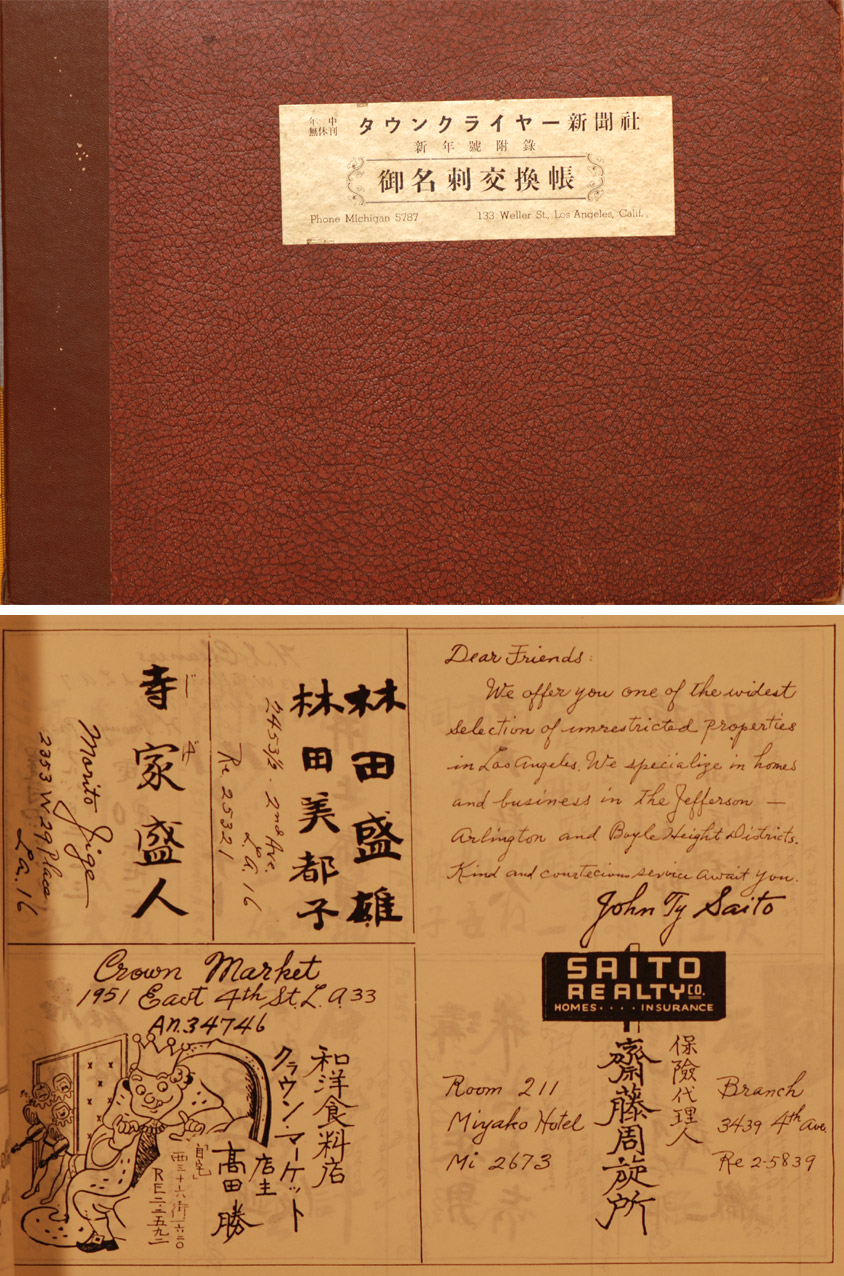 年中
無休刊
タウンクライヤー新聞社
新年號附錄
御名刺交換帳
Phone Michigan 5787
133 Weller St., Los Angeles, Calif.
Dear Friends:
We offer you one of the widest
selection of unrestricted properties
in Los Angeles. We specialize in homes
and business in the Jefferson —
Arlington and Boyle Height Districts.
Kind and courtecious service await you.
John Ty Saito
SAITO
REALTY CO.
HOMES · · · · INSURANCE
保險代理人
齋藤周旋所
Room 211
Miyako Hotel
Mi 2673
Branch
3439 4th Ave.
Re 2-5839
林田盛雄
林田美都子
2453½ · 2nd Ave
L.A. 16
Re 25321
寺家盛人
ジ
ゲ
Morito Jige
2353 W. 29 Place
L.A. 16
Crown Market
1951 East 4th St. L.A. 33
AN. 34746
和洋食料店
クラウン・マーケット
店主
高田勝
自宅
西三十六街一六二〇
RE二・二五九二